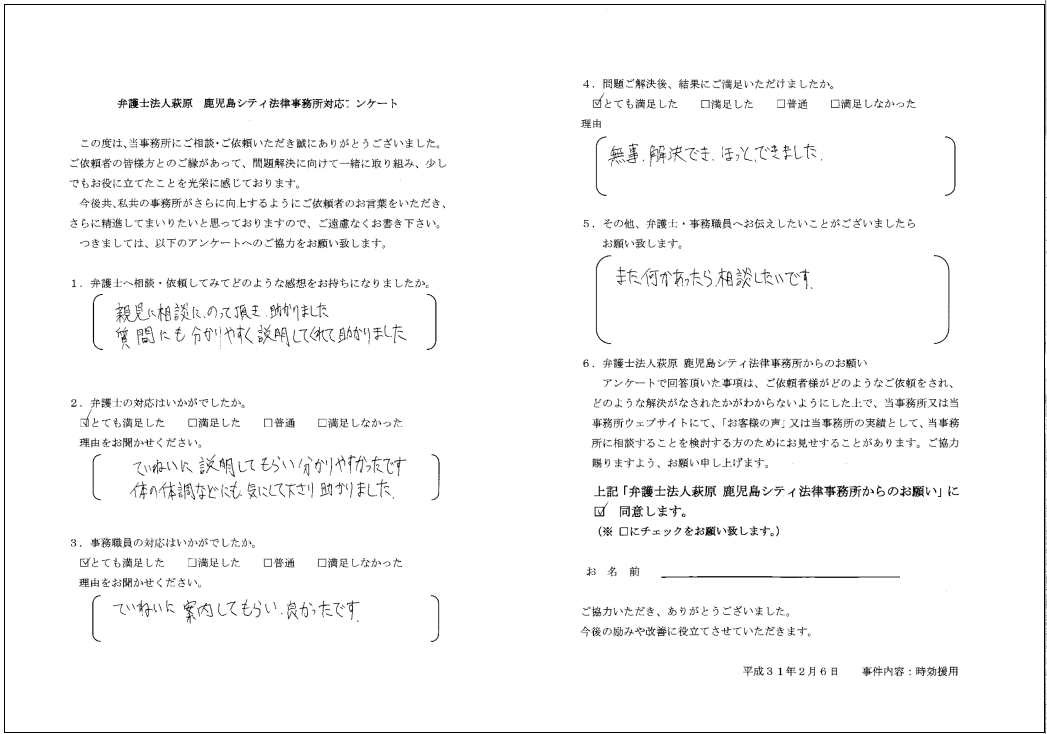 弁護士法人萩原　鹿児島シティ法律事務所対応アンケート
この度は、当事務所にご相談・ご依頼いただき誠にありがとうございました。
ご依頼者の皆様方とのご縁があって、問題解決に向けて一緒に取り組み、少し
でもお役に立てたことを光栄に感じております。
今後共、私共の事務所がさらに向上するようにご依頼者のお言葉をいただき、
さらに精進してまいりたいと思っておりますので、ご遠慮なくお書き下さい。
つきましては、以下のアンケートへのご協力をお願い致します。
１．弁護士へ相談・依頼してみてどのような感想をお持ちになりましたか。
親見に相談に、のって頂き、助かりました
質問にも分かりやすく説明してくれて助かりました
２．弁護士の対応はいかがでしたか。
☑とても満足した　□満足した　□普通　□満足しなかった
理由をお聞かせください。
ていねいに説明してもらい分かりやすかったです
体の体調などにも、気にして下さり助かりました、
３．事務職員の対応はいかがでしたか。
☑とても満足した　□満足した　□普通　□満足しなかった
理由をお聞かせください。
ていねいに案内してもらい、良かったです。
４．問題ご解決後、結果にご満足いただけましたか。
☑とても満足した　□満足した　□普通　□満足しなかった
理由
無事、解決でき、ほっと、できました、
５．その他、弁護士・事務職員へお伝えしたいことがございましたら
お願い致します。
また何かあったら、相談したいです。
６．弁護士法人萩原 鹿児島シティ法律事務所からのお願い
アンケートで回答頂いた事項は、ご依頼者様がどのようなご依頼をされ、
どのような解決がなされたかがわからないようにした上で、当事務所又は当
事務所ウェブサイトにて、「お客様の声」又は当事務所の実績として、当事務
所に相談することを検討する方のためにお見せすることがあります。ご協力
賜りますよう、お願い申し上げます。
上記「弁護士法人萩原 鹿児島シティ法律事務所からのお願い」に
☑　同意します。
（※ □にチェックをお願い致します。）
お　名　前
ご協力いただき、ありがとうございました。
今後の励みや改善に役立てさせていただきます。
平成３１年２月６日　　事件内容：時効援用